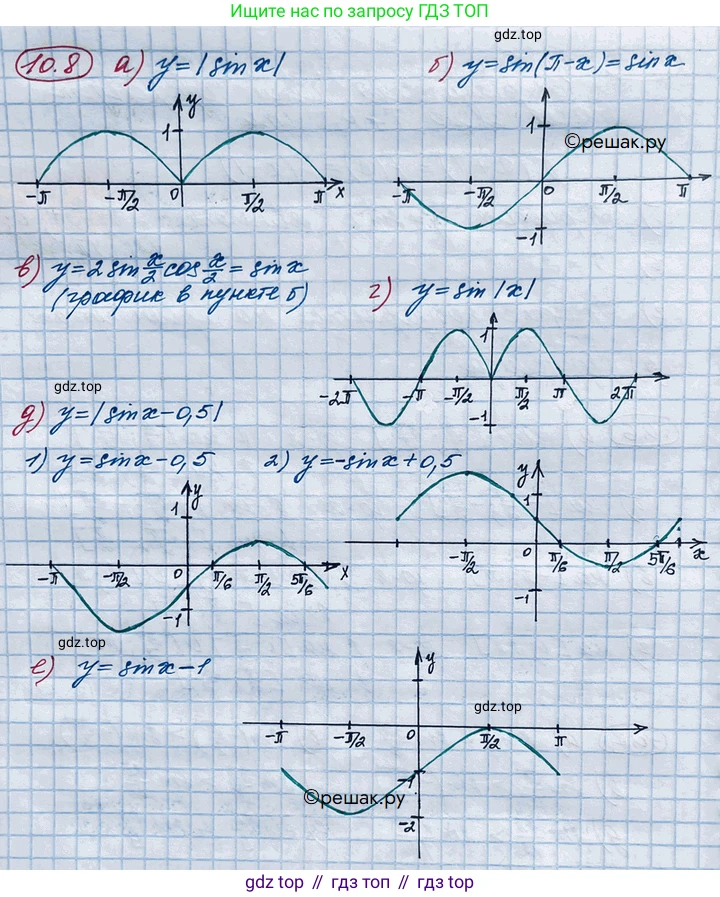 Ищите нас по запросу ГДЗ ТОП
gdz.top
10.8 а) y=|sin x|
б) y=sin(π-x)=sinx
y
1
-π -π/2 0 π/2 π x
1
©решак.ру
-π -π/2 0 π/2 π
-1
в) y=2sin x/2 cos x/2 = sinx
(график в пункте б)
г) y=sin|x|
1
-2π -π -π/2 π/2 π 2π
-1
gdz.top
д) y=|sinx-0,5|
1) y=sinx-0,5
2) y=-sinx+0,5
y
1
-π -π/2 0 π/6 π/2 5π/6 x
-1
y
1
-π/2 0 π/6 π/2 5π/6 x
-1
gdz.top
е) y=sinx-1
y
gdz.top
-π -π/2 0 π/2 π
-1
©решак.ру
-2
gdz top // гдз топ // gdz.top